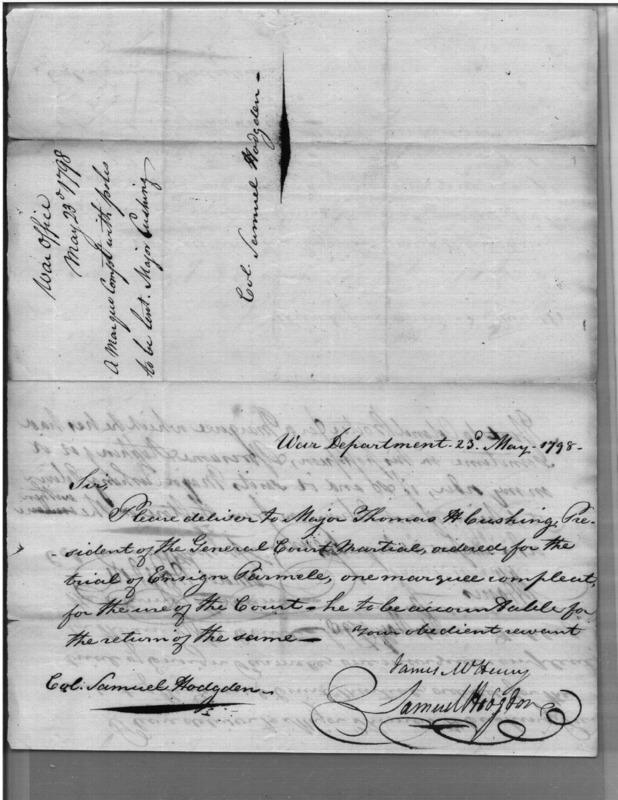 War Office
May 23d 1798
A Marquee Compt with poles
to be lent. Major Cushing
Col. Samuel Hodgden
War Department 23d May 1798
Sir,
Please deliver to Major Thomas H Cushing, Pre-
sident of the General Court Martial, ordered for the
trial of Ensign Parmele, one marquee compleat,
for the use of the Court - he to be accountable for
the return of the same — Your obedient servant
James McHenry
Col. Samuel Hodgden
Samuel Hodgdon